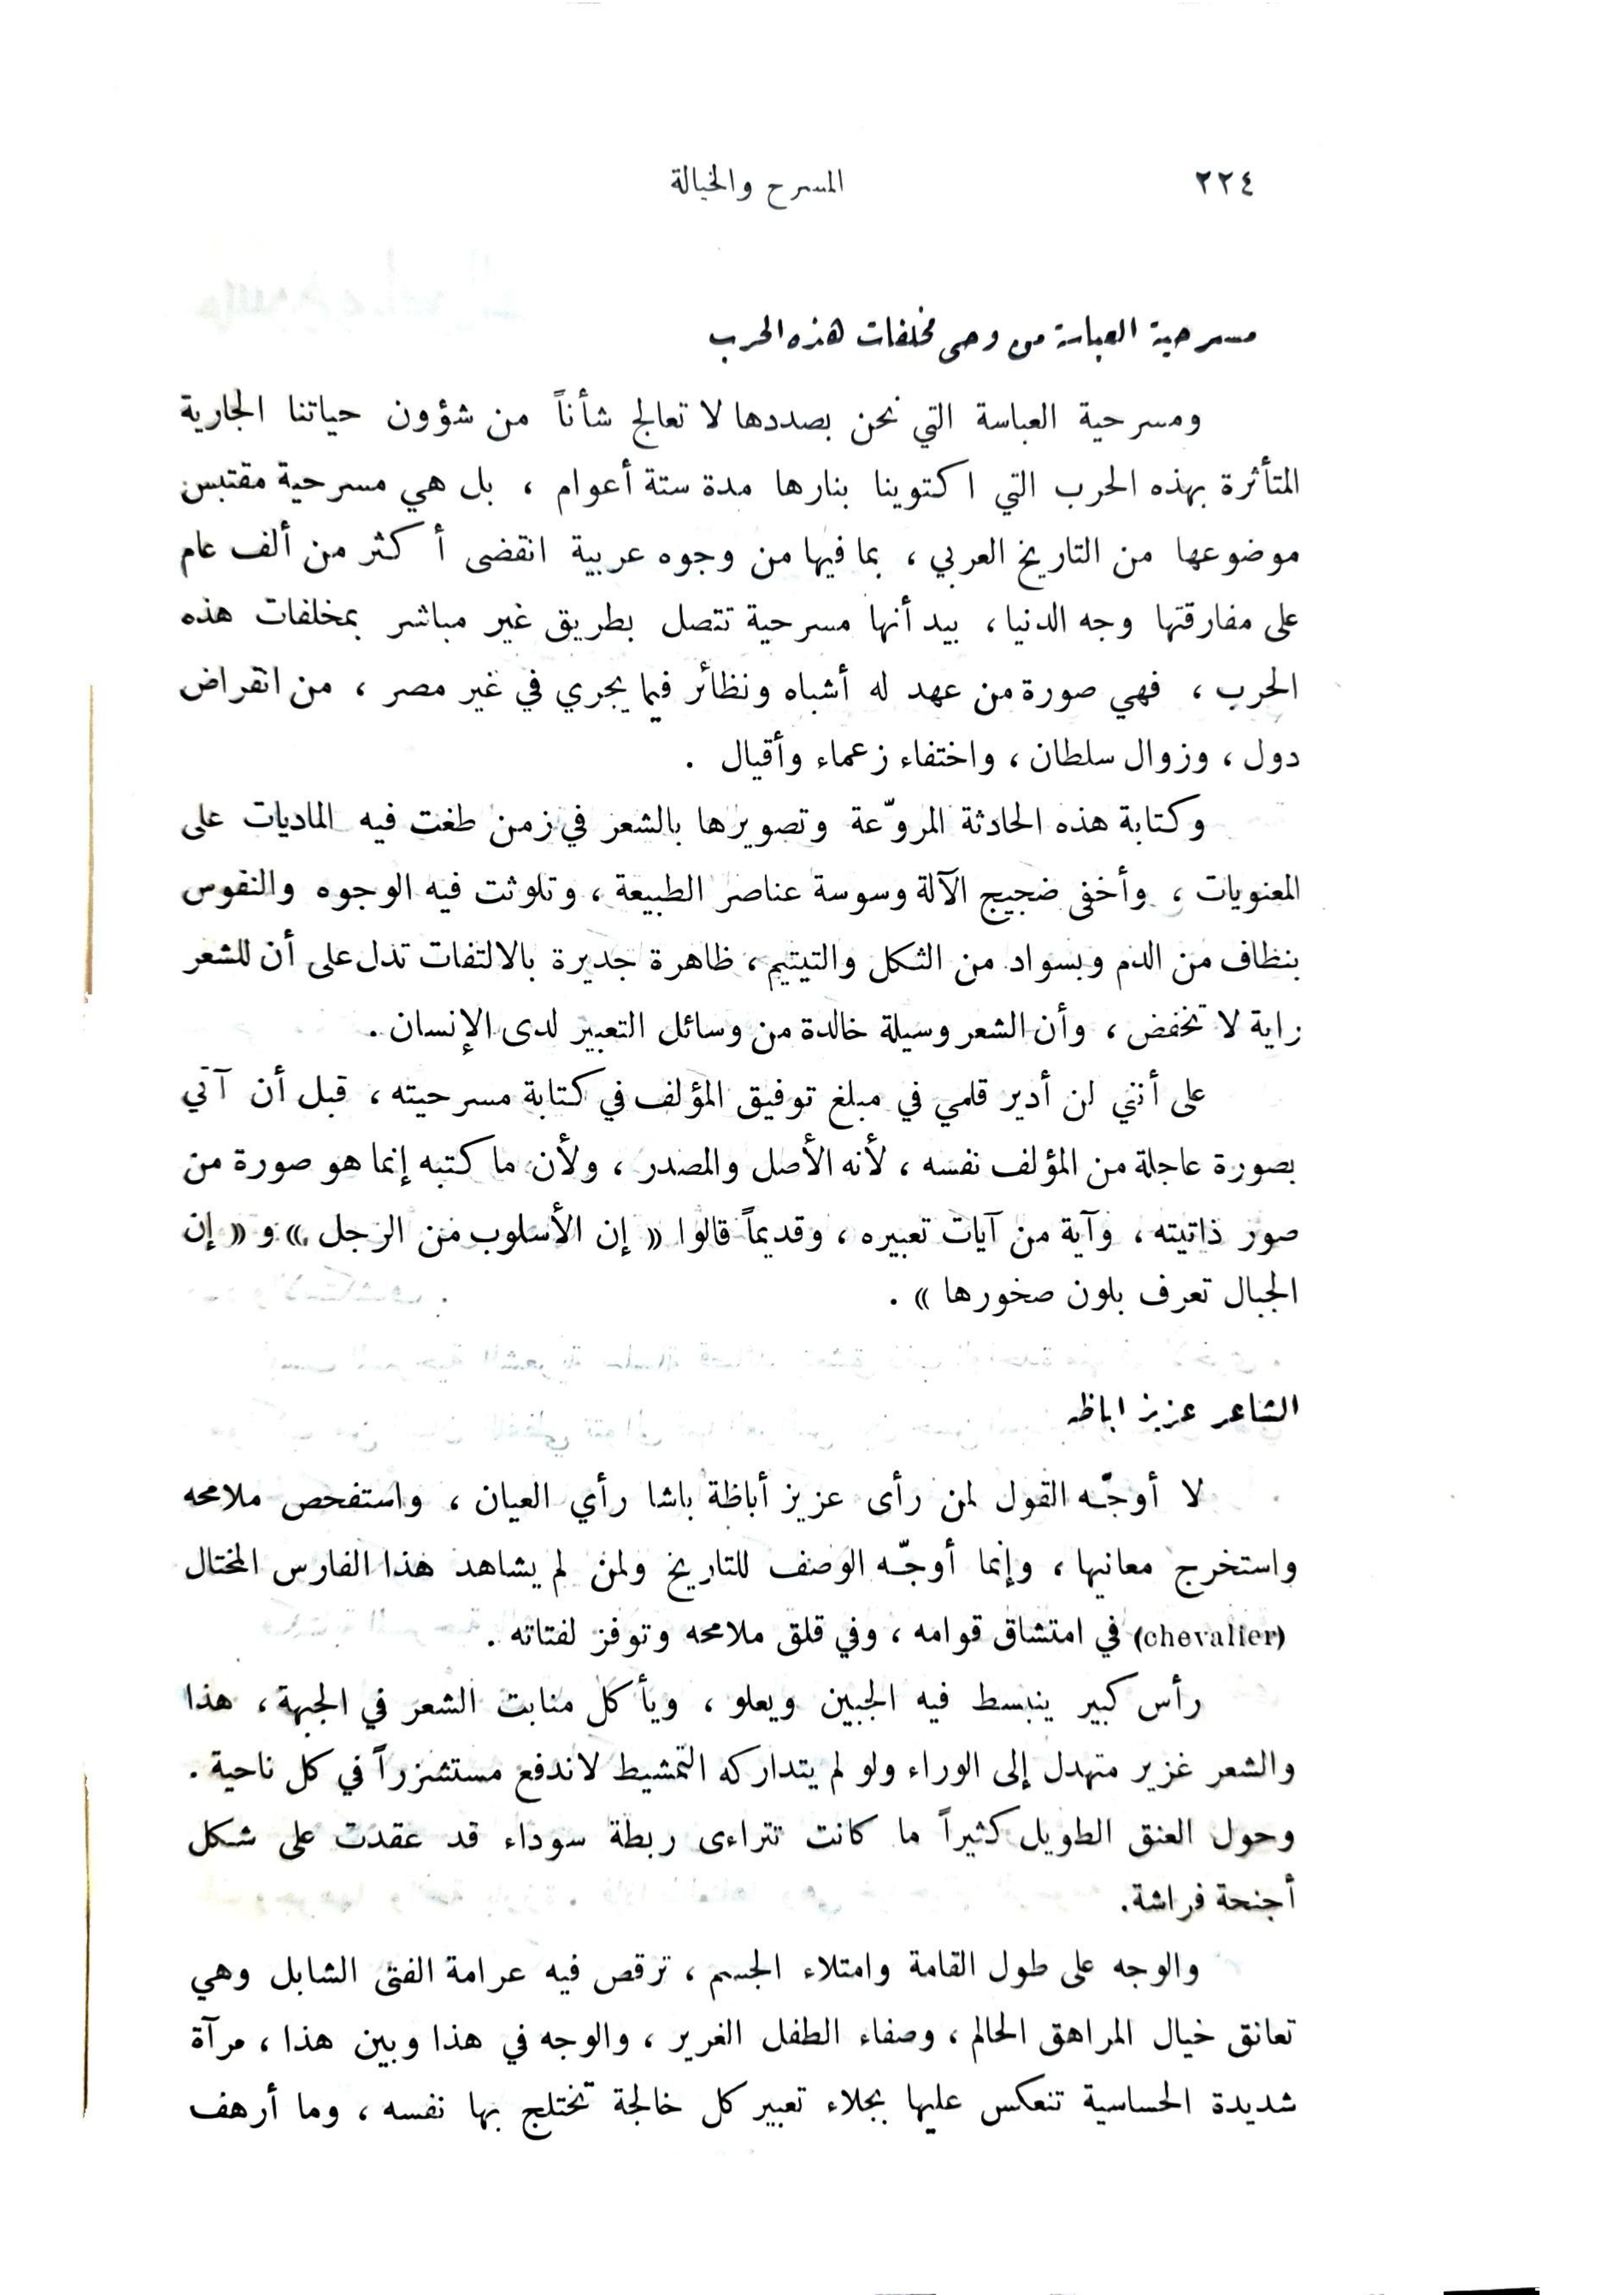 ٢٢٤
المسرح والخيالة
مسرحية العباسة من وحى مخلفات هذه الحرب
ومسرحية العباسة التي نحن بصددها لا تعالج شأناً من شؤون حياتنا الجارية
المتأثرة بهذه الحرب التي اكتوينا بنارها مدة ستة أعوام ، بل هي مسرحية مقتبس
موضوعها من التاريخ العربي ، بما فيها من وجوه عربية انقضى أكثر من ألف عام
على مفارقتها وجه الدنيا ، بيد أنها مسرحية تتصل بطريق غير مباشر بمخلفات هذه
الحرب ، فهي صورة من عهد له أشباه ونظائر فيما يجري في غير مصر ، من انقراض
دول ، وزوال سلطان ، واختفاء زعماء وأقيال .
وكتابة هذه الحادثة المروّعة وتصويرها بالشعر في زمن طغت فيه الماديات على
المعنويات ، وأخفى ضجيج الآلة وسوسة عناصر الطبيعة ، وتلوثت فيه الوجوه والنفوس
بنظاف من الدم وبسواد من الثكل والتيتيم ، ظاهرة جديرة بالالتفات تدل على أن للشعر
راية لا تخفض ، وأن الشعر وسيلة خالدة من وسائل التعبير لدى الإنسان .
على أنني لن أدير قلمي في مبلغ توفيق المؤلف في كتابة مسرحيته ، قبل أن آتي
بصورة عاجلة من المؤلف نفسه ، لأنه الأصل والمصدر ، ولأن ما كتبه إنما هو صورة من
صور ذاتيته ، وآية من آيات تعبيره ، وقديماً قالوا « إن الأسلوب من الرجل » و « إن
الجبال تعرف بلون صخورها » .
الشاعر عزيز اباظه
لا أوجّه القول لمن رأى عزيز أباظة باشا رأي العيان ، واستفحص ملامحه
واستخرج معانيها ، وإنما أوجّه الوصف للتاريخ ولمن لم يشاهد هذا الفارس المختال
(chevalier) في امتشاق قوامه ، وفي قلق ملامحه وتوفز لفتاته .
رأس كبير ينبسط فيه الجبين ويعلو ، ويأكل منابت الشعر في الجبهة ، هذا
والشعر غزير متهدل إلى الوراء ولو لم يتداركه التمشيط لاندفع مستشزراً في كل ناحية .
وحول العنق الطويل كثيراً ما كانت تتراءى ربطة سوداء قد عقدت على شكل
أجنحة فراشة.
والوجه على طول القامة وامتلاء الجسم ، ترقص فيه عرامة الفتى الشابل وهي
تعانق خيال المراهق الحالم ، وصفاء الطفل الغرير ، والوجه في هذا وبين هذا ، مرآة
شديدة الحساسية تنعكس عليها بجلاء تعبير كل خالجة تختلج بها نفسه ، وما أرهف